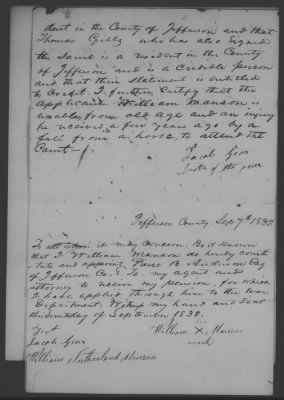 dent in the County of Jefferson and that
Thomas Gibby who has also signed
the same is a resident in the County
of Jefferson and is a credible person
and that their statement is entitled
to Credit. I further Certify that the
applicant William Manson is
unable, from old age and an injury
he received a few years ago by a
fall from a horse, to attend the
Court
Jacob Gear
Justice of the peace
Jefferson County Sep 7th 1838
To all whom it may concern, Be it known
that I William Manson do hereby consti
tute and appoint B. Esq
of Jefferson Co. my agent and
attorney to receive my pension, for which
I have applied through him to the War
Department. Witness my hand and seal
this day of September 1838.
Test
William X Manson
mark
Jacob Gear
William Sutherland Munson